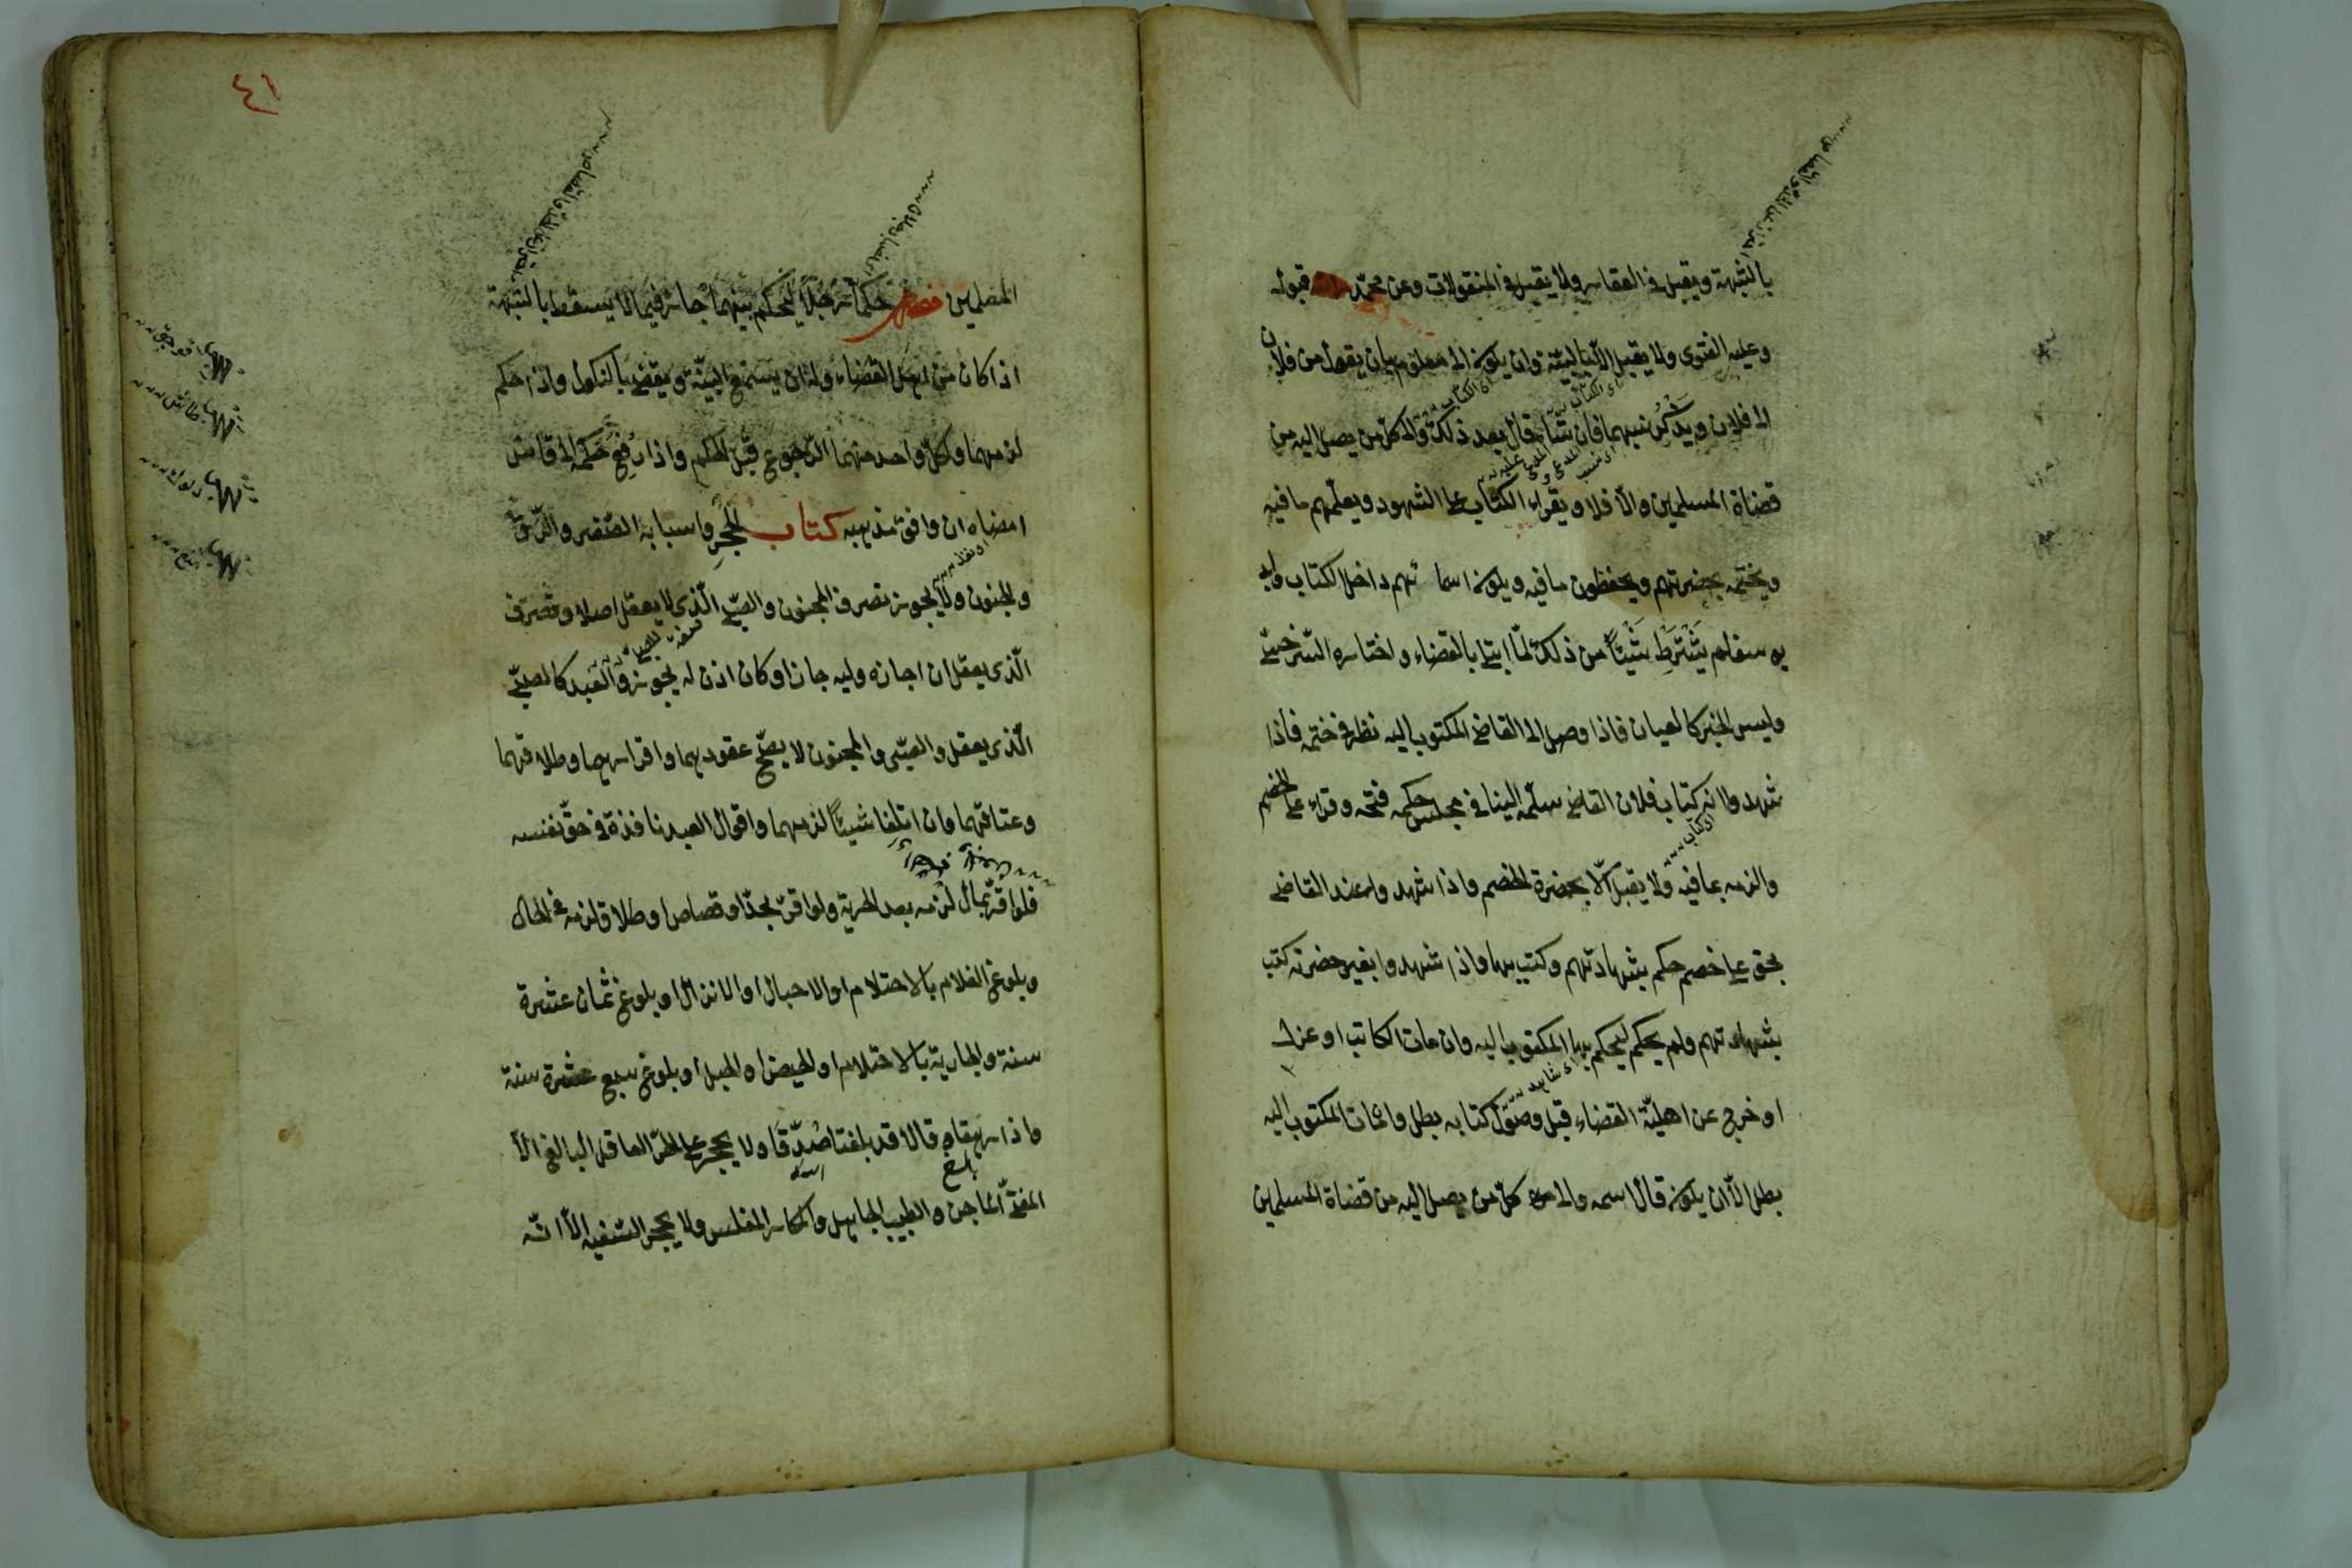 بالشبهة ويقبل في العقار ولا يقبل في المنقولات وعن محمّد قبوله
وعليه الفتوى ولا يقبل الّا بالبيّنة وان يكون الى معلوم بان يقول من فلان
الى فلان ويذكر نسبهما فان شاء قال بعد ذلك والى كلّ من يصل اليه من
قضاة المسلمين والّا فلا ويقراء الكتاب على الشهود ويعلّمهم ما فيه
ويختمه بحضرتهم ويحفظون ما فيه ويكون اسماءهم داخل الكتاب وابو
يوسف لم يشترط شيئاً من ذلك لمّا ابتلى بالقضاء واختاره السّرخسىّ
وليس الخبر كالعيان فاذا وصل الى القاضي المكتوب اليه نظر في ختمه فاذا
شهدوا انه كتاب فلان القاضي سلّمه الينا في مجلس حكمه فتحه وقراء على الخصم
والزمه بما فيه ولا يقبل الّا بحضرة الخصم واذا شهدوا عند القاضي
بحق على خصم حكم بشهادتهم وكتب بها واذا شهدوا بغير حضرته كتب
بشهادتهم ولم يحكم ليحكم بها المكتوب اليه وان مات الكاتب او عزل
او خرج عن اهليّة القضاء قبل وصول كتابه بطل وان مات المكتوب اليه
بطل الّا ان يكون قال اسمه والى كلّ من يصل اليه من قضاة المسلمين
٤١
المسلمين فصل حكما رجلاً ليحكم بينهما جاز فيما لا يسقط بالشبهة
اذا كان من اهل القضاء وله ان يسمع البيّنة ويقضي بالنكول واذا حكم
لزمهما ولكلّ واحد منهما الرّجوع قبل الحكم واذا رفع حكمه الى قاض
امضاه ان وافق مذهبه كتاب الحجر واسبابه الصّغر والرّقّ
والجنون ولا يجوز تصرف المجنون والصبّي الّذي لا يعقل اصلا وتصرف
الّذي يعقل ان اجازه وليه جاز او كان اذن له يجوز والعبد كالصبىّ
الّذي يعقل والصبّى والمجنون لا يصحّ عقودهما واقرارهما وطلاقهما
وعتاقهما وان اتلفا شيئاً لزمهما واقوال العبد نافذة في حقّ نفسه
فلو اقرّ بمال لزمه بعد الحرية ولو اقرّ بحدّ او قصاص او طلاق لزمه في الحال
وبلوغ الغلام بالاحتلام او الاحبال او الانزال او بلوغ ثمان عشرة
سنة والجارية بالاحتلام او الحيض او الحبل او بلوغ سبع عشرة سنة
واذا راهقا وقالا قد بلغنا صُدّقا ولا يحجر على الحرّ العاقل البالغ الّا
المفتى الماجن والطبيب الجاهل والمكارى المفلس ولا يحجر السّفيه الّا انّه